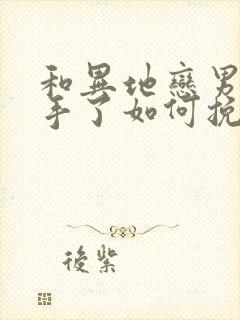 和異地戀男
手了如何挽
後紫